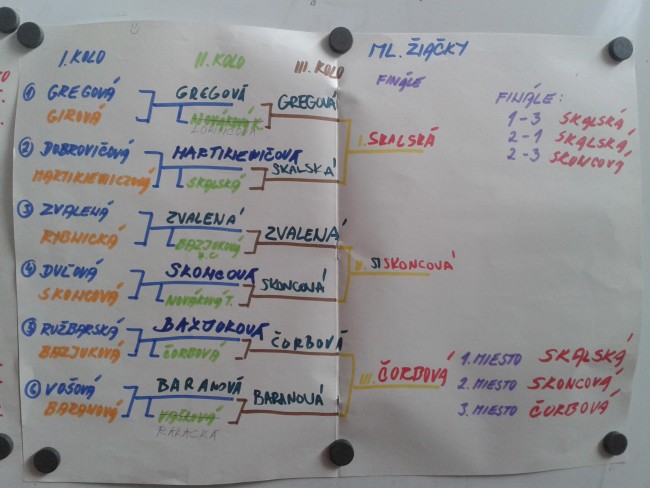 I. KOLO II. KOLO III. KOLO
ML. ŽIAČKY
FINÁLE
① GREGOVÁ
GIROVÁ
② DOBROVIČOVÁ
MARTIKIEWICZOVÁ
③ ZVALENÁ
RYBNICKÁ
④ DULOVÁ
SKONCOVÁ
⑤ RUŽBARSKÁ
BAZJUKOVÁ
⑥ VOŠOVÁ
BARANOVÁ
GREGOVÁ
NOVÁKOVÁ K
MARTIKIEWIČOVÁ
SKALSKÁ
ZVALENÁ
BAZJUKOVÁ
SKONCOVÁ
NOVÁKOVÁ T.
BAZJUKOVÁ
ČORBOVÁ
BARANOVÁ
VAŠKOVÁ
GREGOVÁ
SKALSKÁ
ZVALENÁ
SKONCOVÁ
ČORBOVÁ
BARANOVÁ
I. SKALSKÁ
II. SKONCOVÁ
III. ČORBOVÁ
FINÁLE:
1-3 SKALSKÁ
2-1 SKALSKÁ
2-3 SKONCOVÁ
1. MIESTO SKALSKÁ
2. MIESTO SKONCOVÁ
3. MIESTO ČORBOVÁ